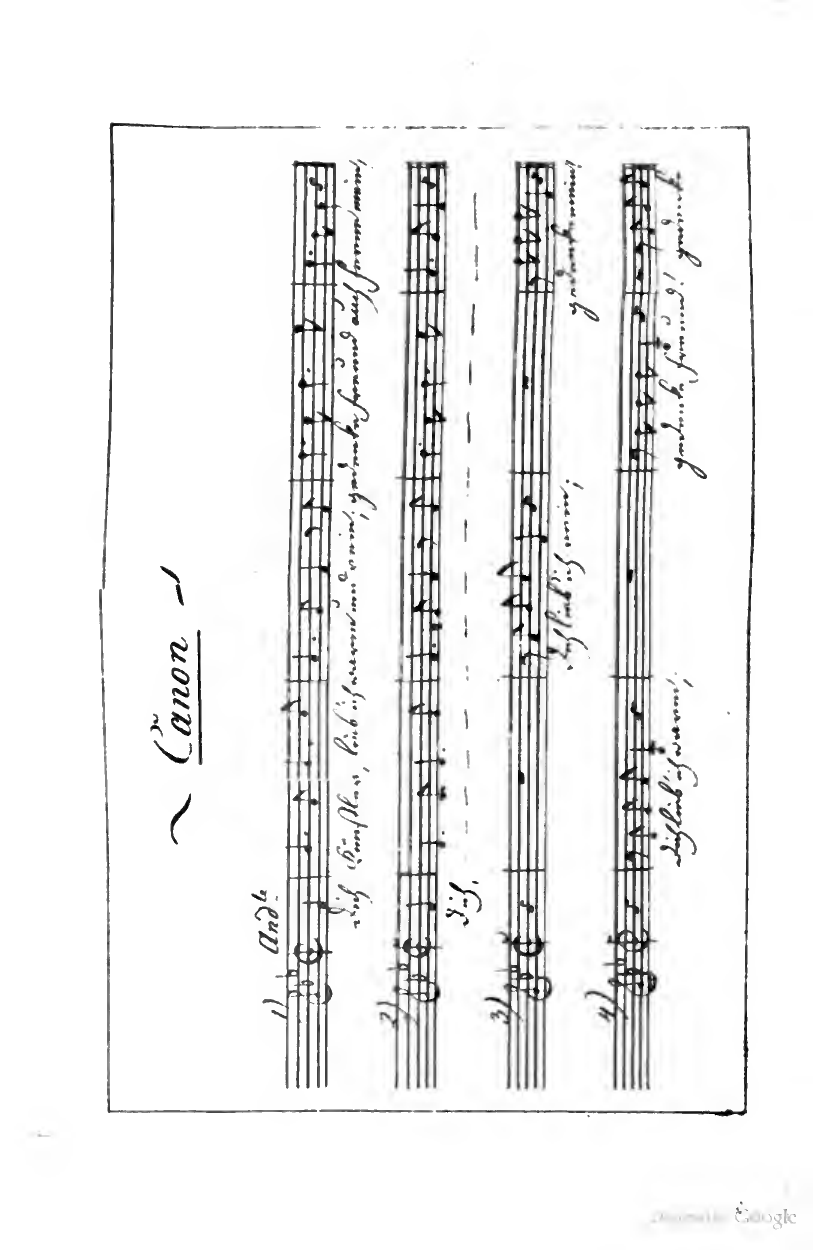 Canon
Andte
1)
Dich Künstler, lieb' ich warm und rein; gedenke Freund auch ferne mein;
2)
Dich,
3)
Dich lieb' ich rein; gedenke mein!
4)
Dich lieb' ich warm; gedenke Freund! gedenke
Google